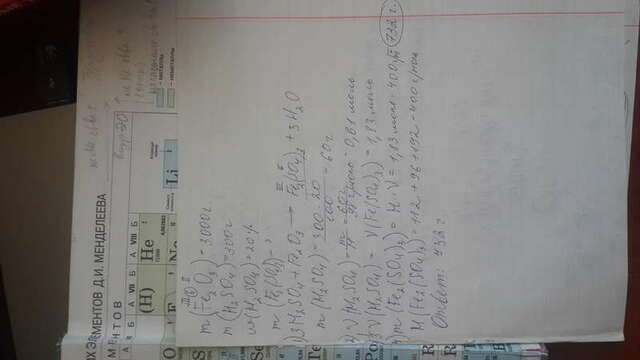 ИХ ЭЛЕМЕНТОВ Д.И. МЕНДЕЛЕЕВА
МЕНТОВ
А VII Б А VIII Б
(H) He
Li
МЕТАЛЛЫ
НЕМЕТАЛЛЫ
III II
m(Fe2O3) = 3000г
m(H2SO4) = 300г
w(H2SO4) = 20%
m(Fe2(SO4)3) - ?
1) 3H2SO4 + Fe2O3 → Fe2(SO4)3 + 3H2O
m(H2SO4) = 300 · 20 / 100 = 60г
2) ν(H2SO4) = m/M = 60г / 98 г/моль = 0,61 моль
3 ν(H2SO4) = ν(Fe(SO4)3) = 1,83 моль
4) m(Fe2(SO4)3) = M · ν = 1,83 моль · 400 г/м = 732 г.
M(Fe2(SO4)3) = 112 + 96 + 192 = 400 г/моль
Ответ: 732 г